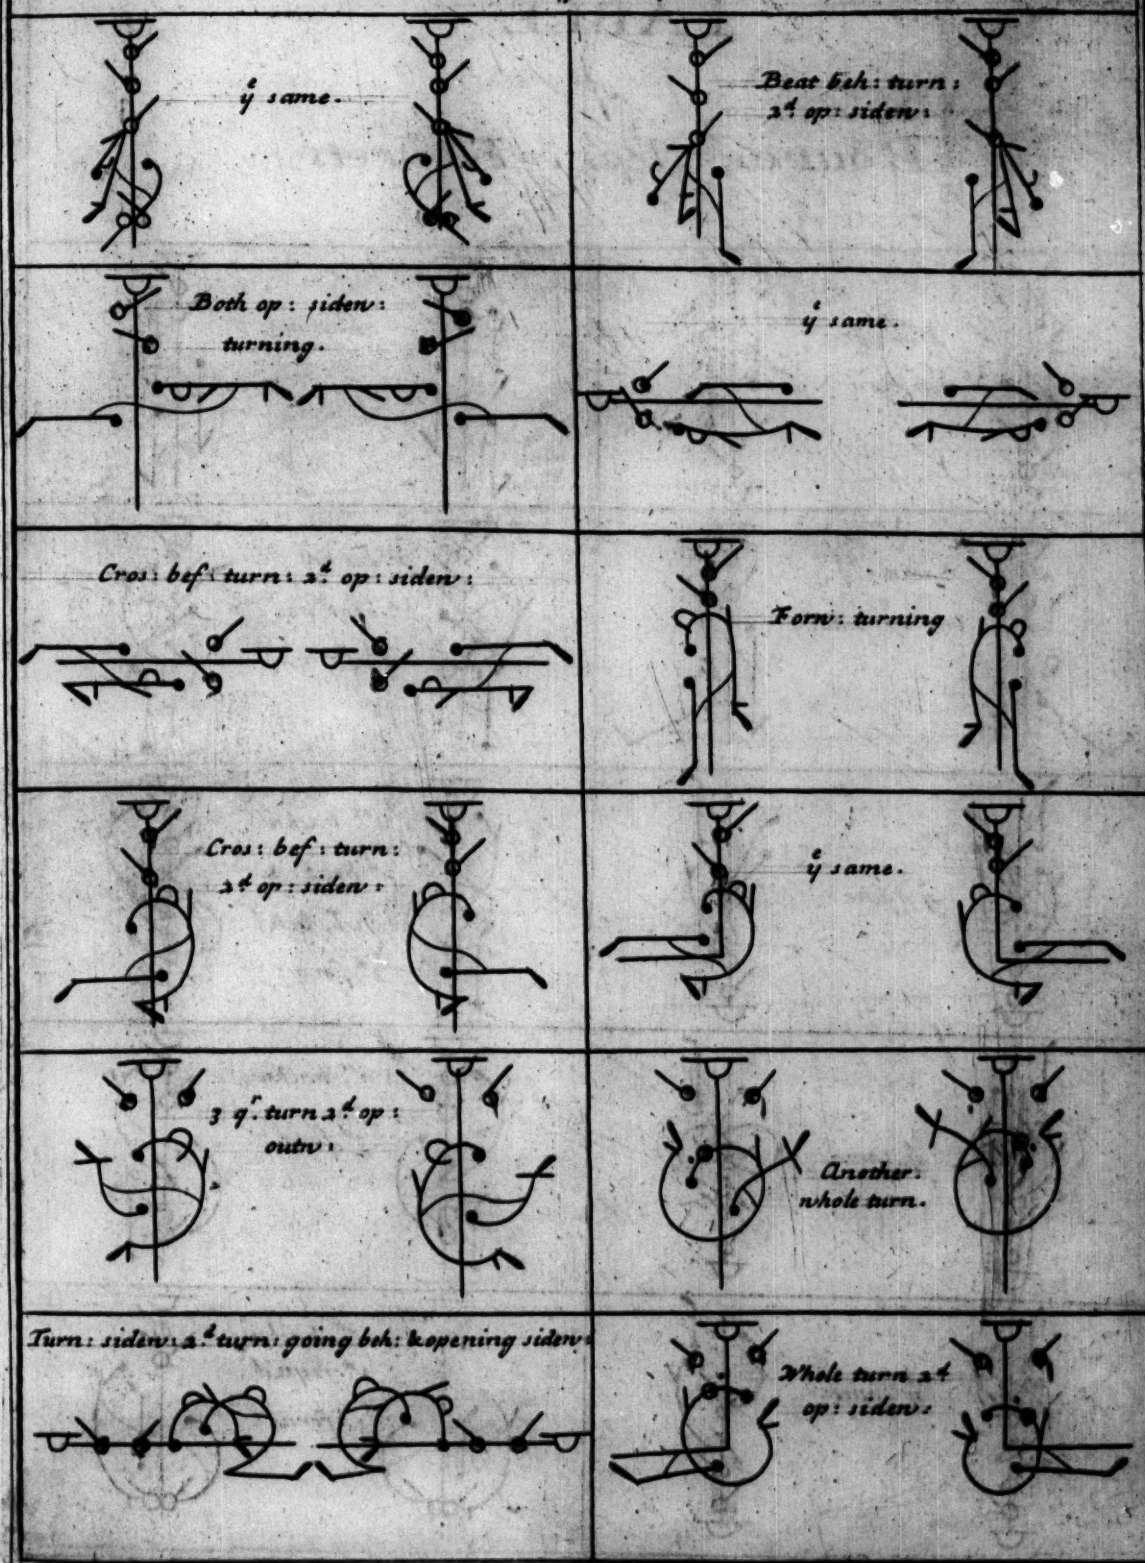 yᵉ same.
Beat beh: turn:
2ᵈ op: siden:
Both op: siden:
turning.
yᵉ same.
Cros: bef: turn: 2ᵈ op: siden:
Forw: turning
Cros: bef: turn:
2ᵈ op: siden:
yᵉ same.
3 qʳ. turn 2ᵈ op:
outw:
Another.
whole turn.
Turn: siden: 2ᵈ turn: going beh: & opening siden:
Whole turn 2ᵈ
op: siden: